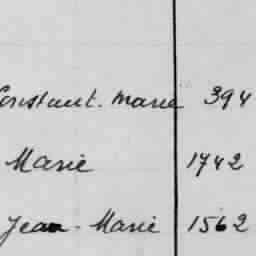 Constant. Marie 394
Marie 1742
Jean. Marie 1562